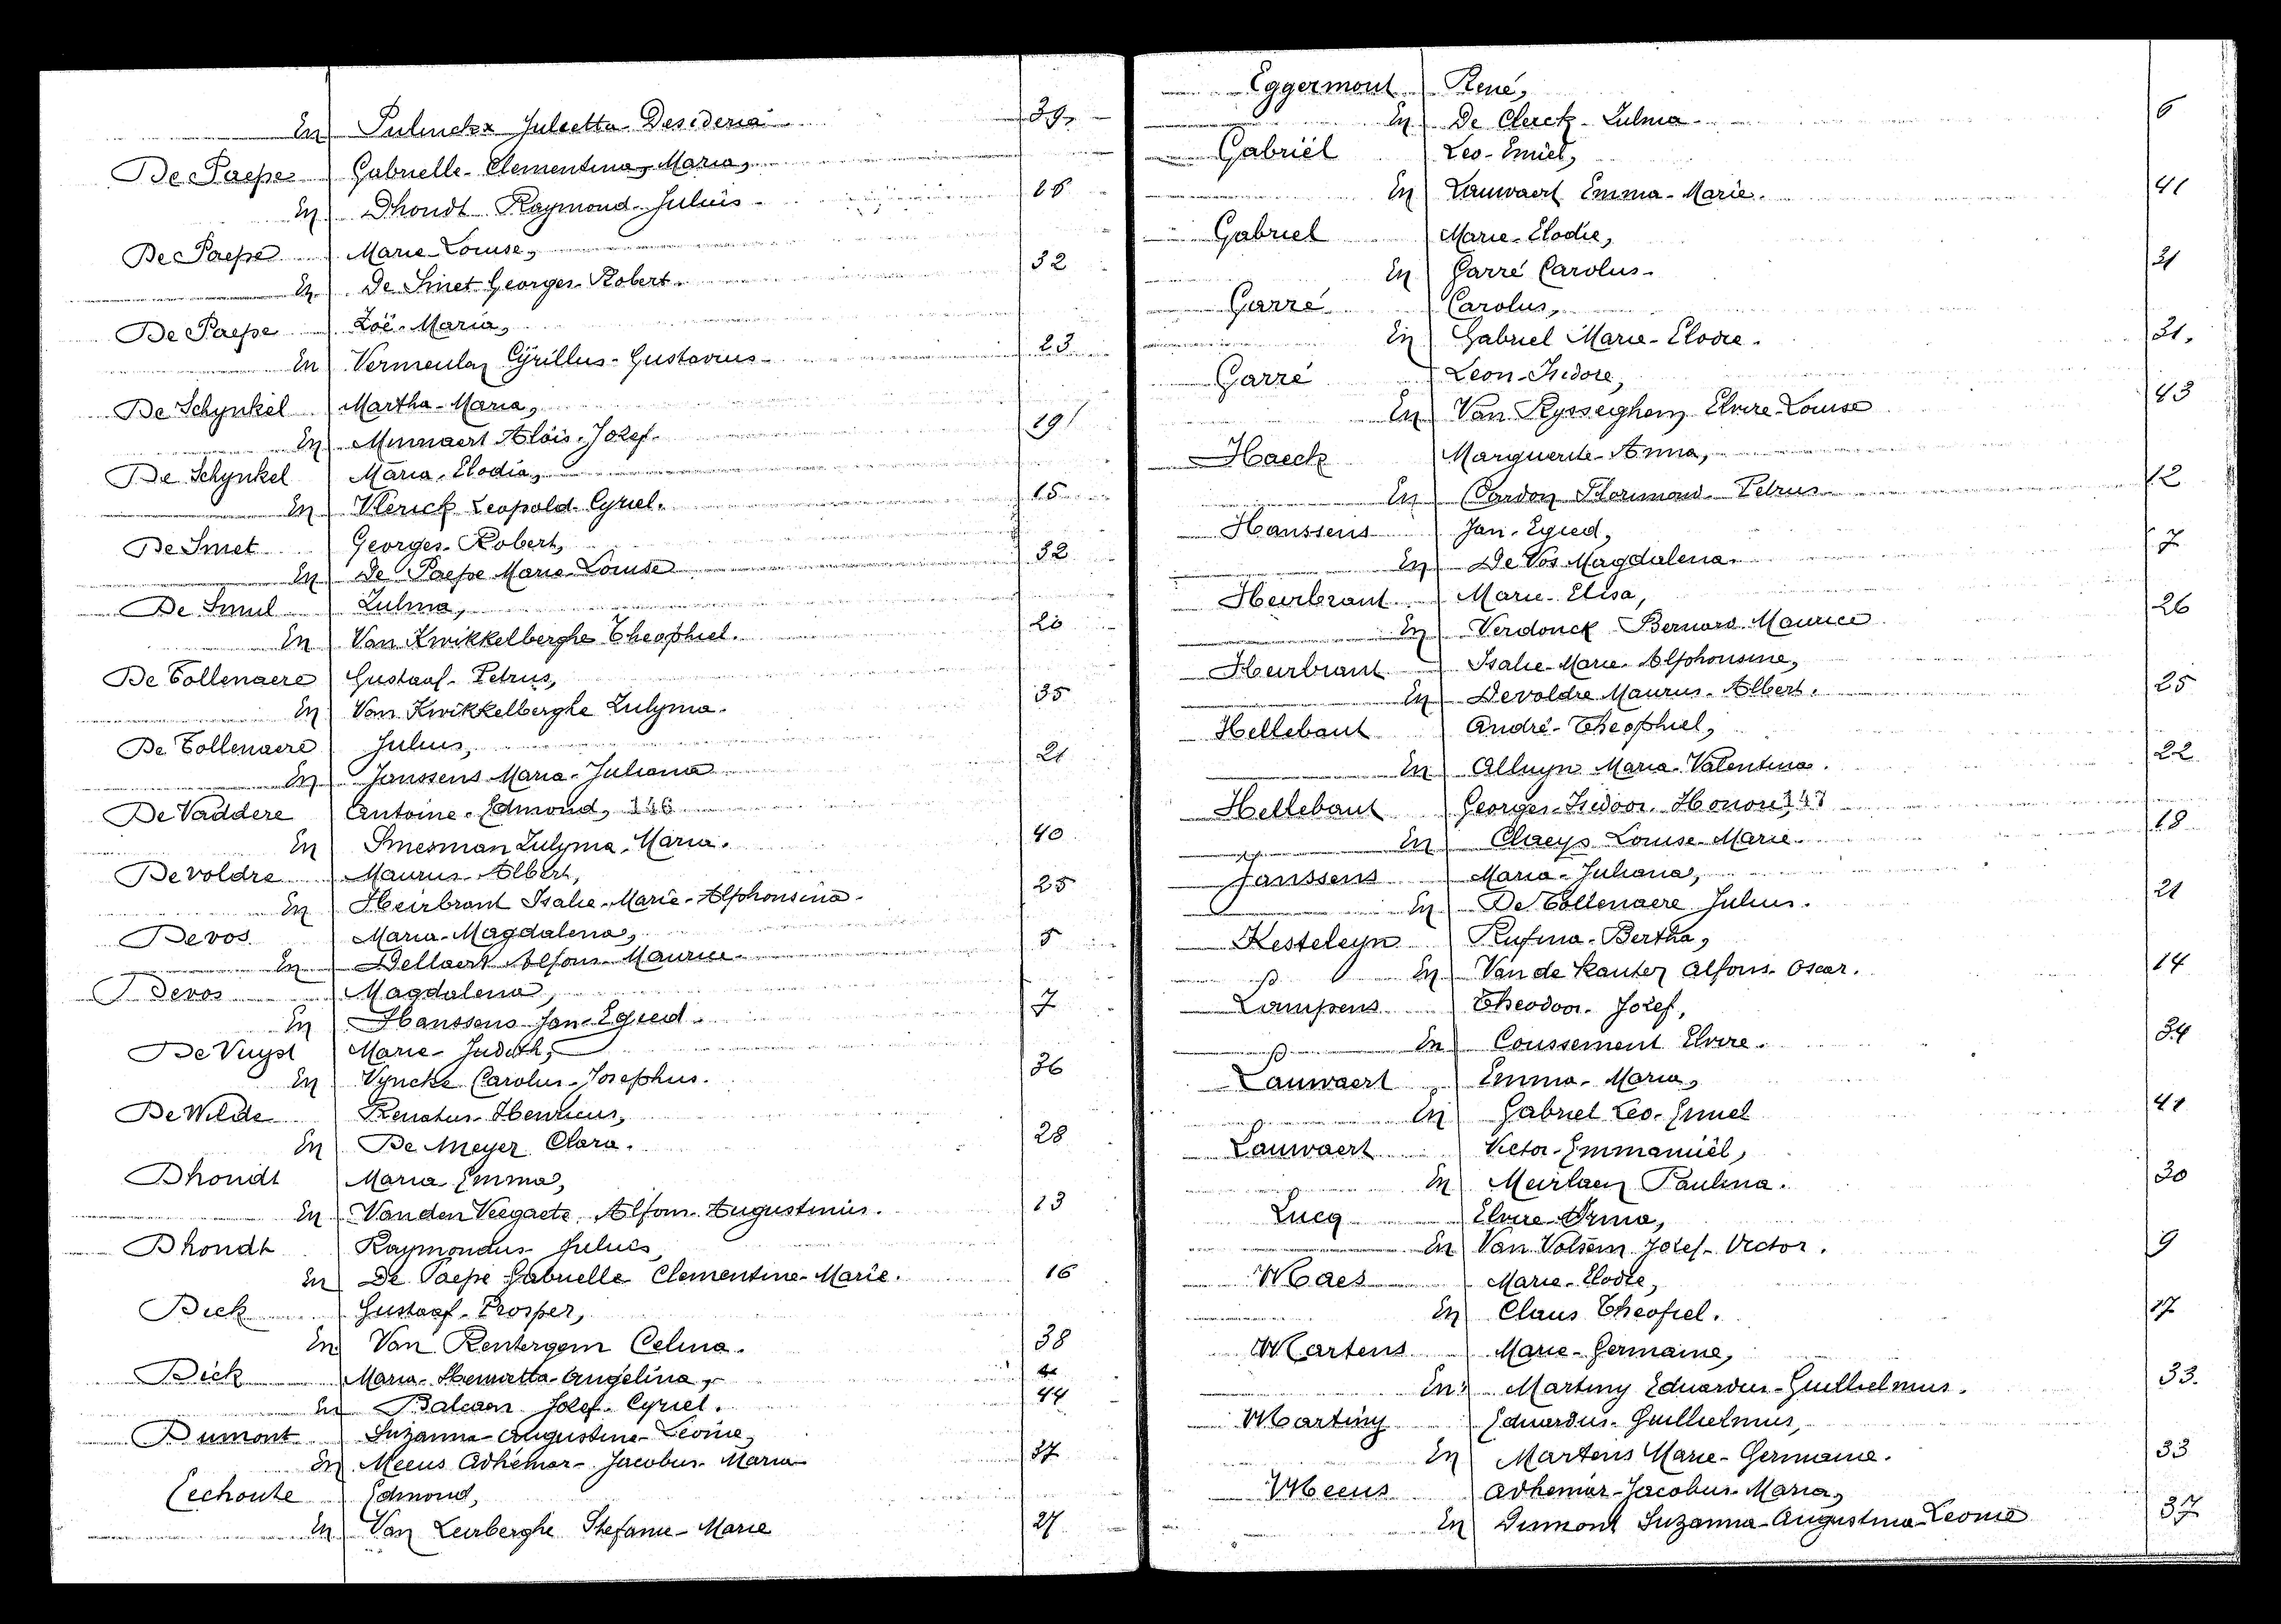 En Pulinckx Julietta-Desideria 39.
De Paepe Gabrielle-Clementina-Maria,
En Dhondt Raymond-Julius- 16
De Paepe Marie-Louise,
En De Smet Georges-Robert. 32
De Paepe Zoë-Maria,
En Vermeulen Cÿrillus-Gustavus- 23
De Schynkel Martha-Maria,
En Minnaert Aloïs-Jozef. 19
De Schynkel Maria-Elodia,
En Vlerick Leopold-Cyriel. 15
De Smet Georges-Robert,
En De Paepe Marie-Louise 32
De Smul Zulma,
En Van Kwikkelberghe Theophiel. 20
De Tollenaere Gustaaf-Petrus,
En Van Kwikkelberghe Zulyma. 35
De Tollenaere Julius,
En Janssens Maria-Juliana 21
De Vaddere Antoine-Edmond, 146
En Smesman Zulyma-Maria. 40
Devoldre Maurus-Albert,
En Heirbrant Isalie-Marie-Alphonsina- 25
Devos Maria-Magdalena,
En Dellaert Alfons-Maurice- 5
Devos Magdalena,
En Hanssens Jan-Egied. 7
De Vuyst Marie-Judith,
En Vyncke Carolus-Josephus. 36
De Wilde Renatus-Henricus,
En De Meyer Clara. 28
Dhondt Maria Emma,
En Vanden Veegaete Alfons-Augustinus. 13
Dhondt Raymondus-Julius,
En De Paepe Gabrielle Clementine-Marie. 16
Dick Gustaaf-Prosper,
En Van Rentergem Celina. 38
Dick Maria-Henrietta-Angelina,
En Balcaen Jozef-Cyriel. 44
Dumont Suzanna-Augustine-Leonie,
En Meeus Adhémar-Jacobus-Maria 37
Eechoute Edmond,
En Van Leirberghe Stefanie-Marie 27
Eggermont René,
En De Clerck-Zulma 6
Gabriël Leo-Emiel,
En Lauwaert Emma-Marie. 41
Gabriel Marie-Elodie,
En Garré Carolus- 31
Garré Carolus,
En Gabriel Marie-Elodie. 31.
Garré Leon-Isidore,
En Van Rysseighem Elvire-Louise 43
Haeck Marguerite-Anna,
En Cardon Florimond-Petrus 12
Hanssens Jan-Egied,
En De Vos Magdalena. 7
Heirbrant Marie-Elisa,
En Verdonck Bernard-Maurice 26
Heirbrant Isalie-Marie-Alphonsine,
En Devoldre Maurus-Albert. 25
Hellebaut André-Theophiel,
En Alluyn Maria-Valentina. 22
Hellebaut Georges-Isidoor-Honoré, 147
En Claeys Louise-Marie. 18
Janssens Maria-Juliana,
En De Tollenaere Julius. 21
Kesteleyn Rufina-Bertha,
En Van de Kauter Alfons-Oscar. 14
Lampens Theodoor-Jozef,
En Coussement Elvire. 34
Lauwaert Emma-Maria,
En Gabriel Leo-Emiel 41
Lauwaert Victor-Emmanuël,
En Meirlaen Paulina. 30
Lucq Elvire-Irma,
En Van Volsem Jozef-Victor. 9
Maes Marie-Elodie,
En Claus Theofiel. 17
Martens Marie-Germaine,
En Martiny Eduardus-Guilhelmus. 33.
Martiny Eduardus-Guilhelmus,
En Martens Marie-Germaine. 33
Meeus Adhemar-Jacobus-Maria,
En Dumont Suzanna-Augustina-Leonie 37